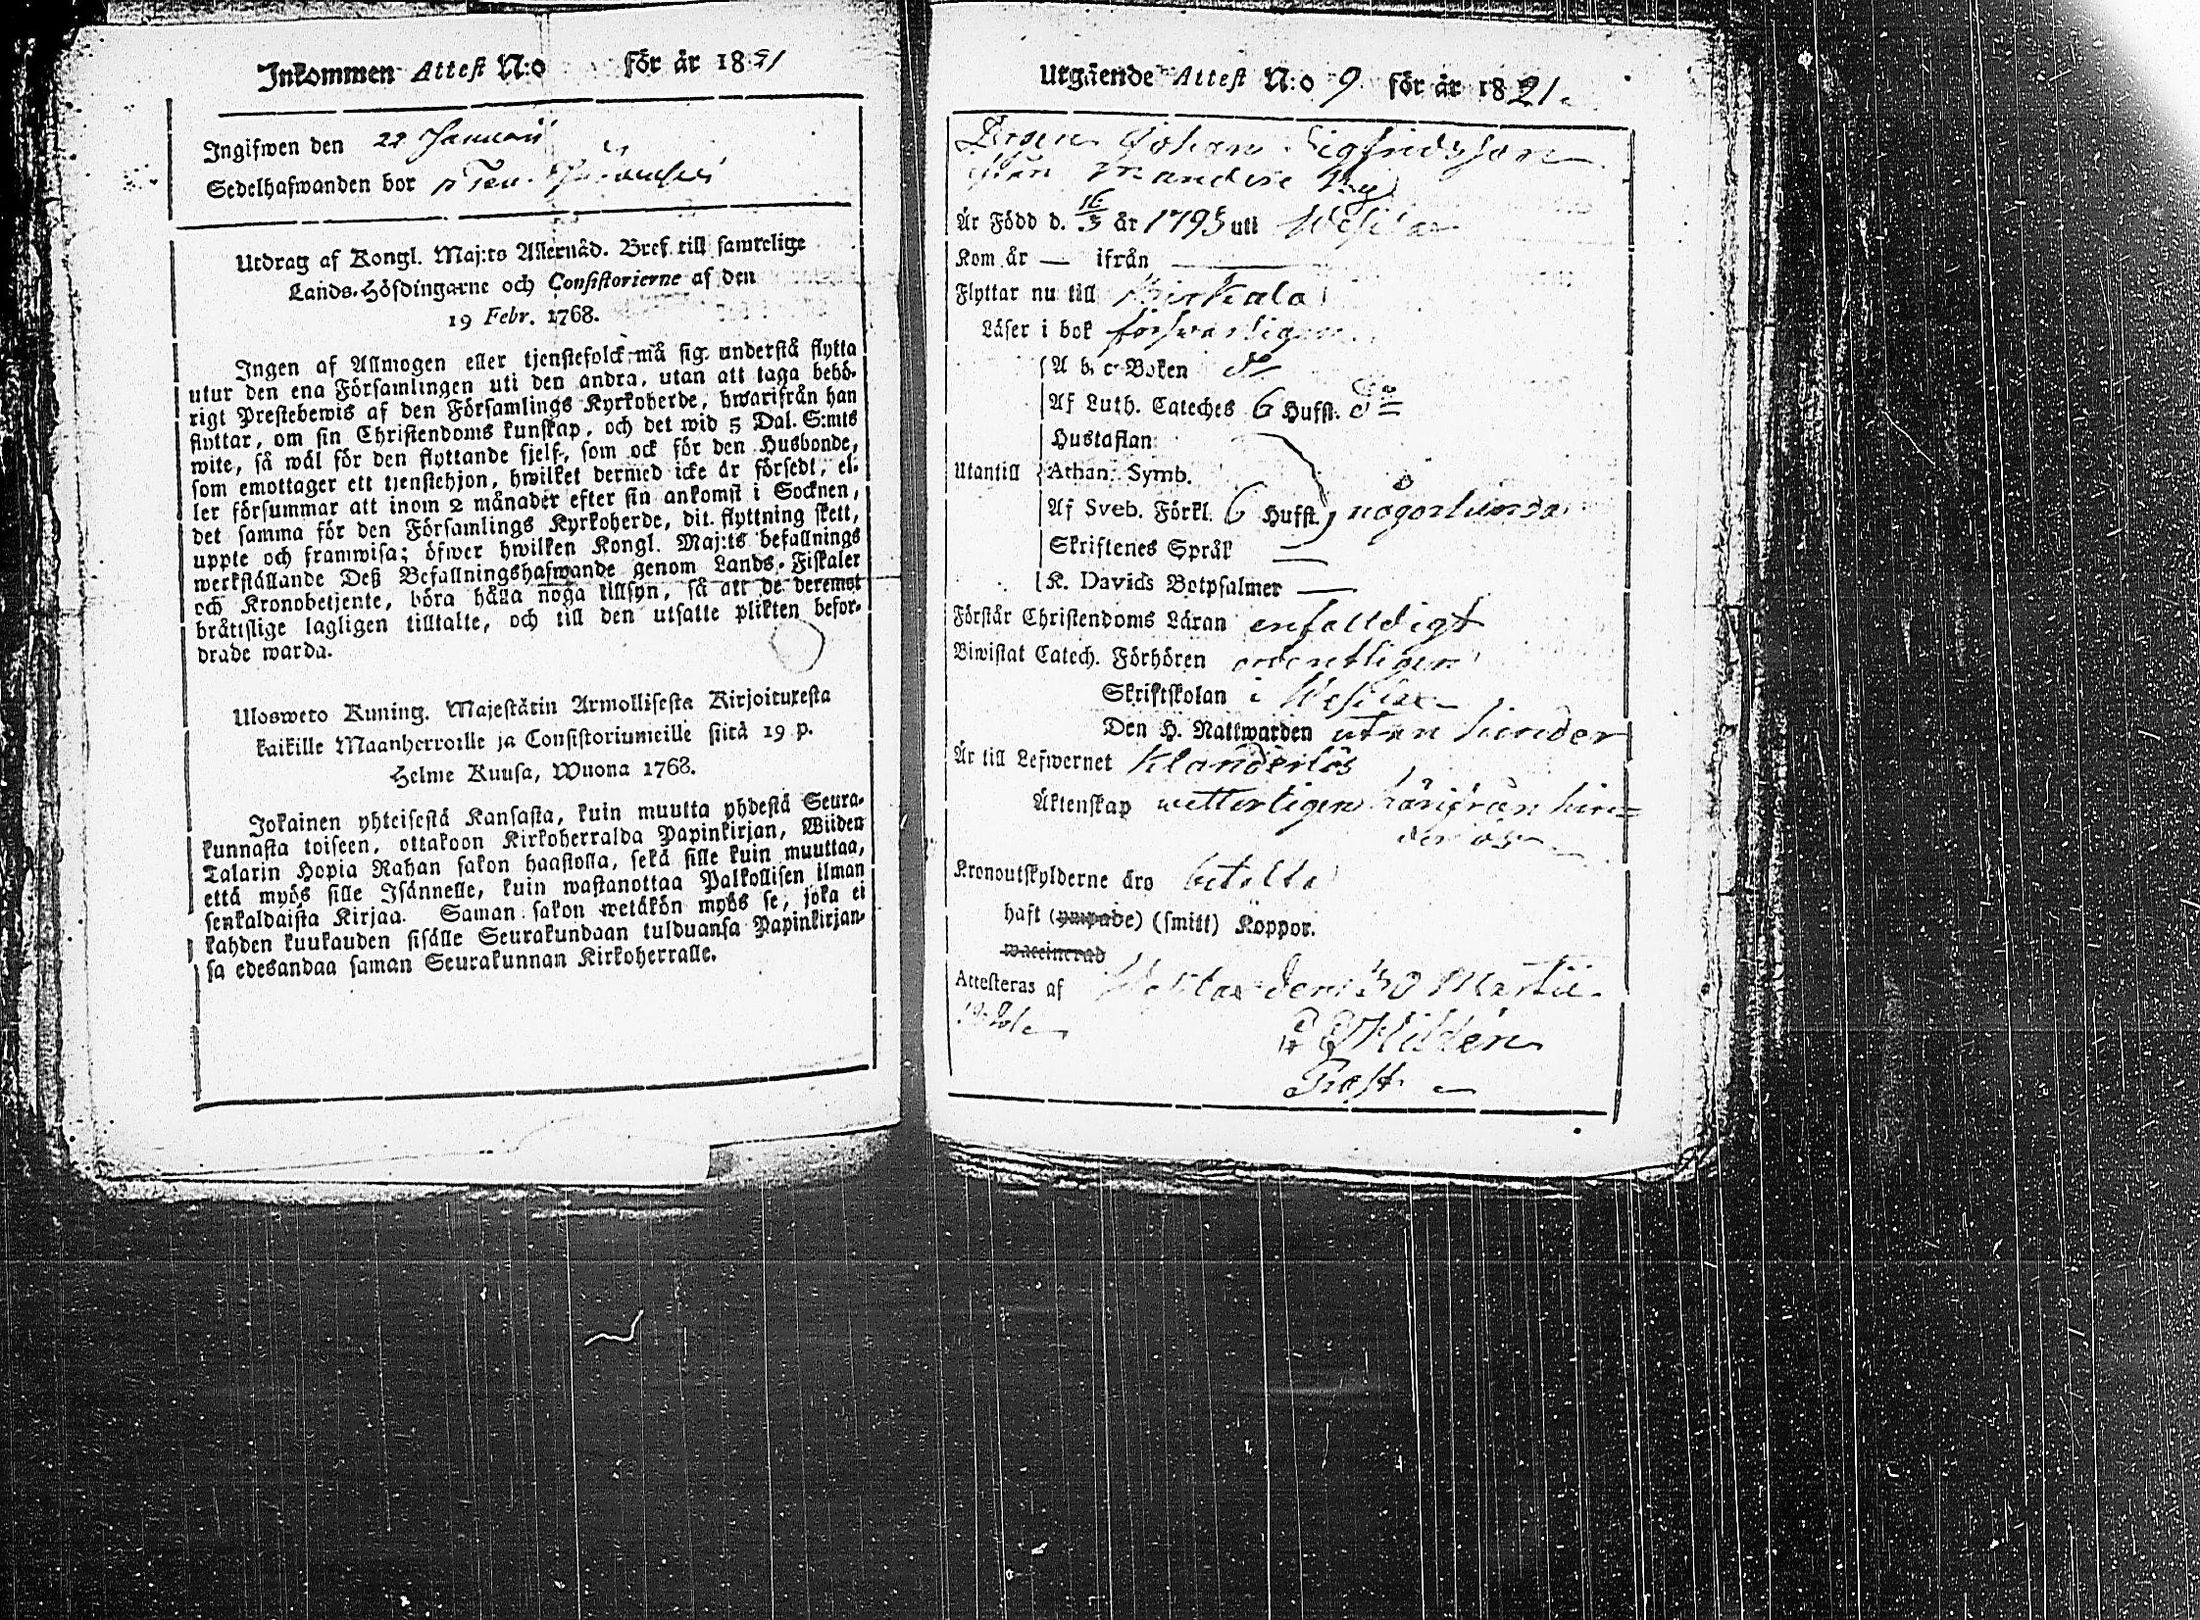 Inkommen Attest N:o för år 1821
Ingifwen den 22 Januarii
Sedelhafwanden bor
Utdrag af Kongl. Maj:ts Allernåd. Bref till samtelige
Lands-Höfdingarne och Consistorierne af den
19 Febr. 1768.
Ingen af Allmogen eller tjenstefolck må sig understå flytta
utur den ena Församlingen uti den andra, utan att taga behö-
rigt Prestebewis af den Församlings Kyrkoherde, hwarifrån han
flyttar, om sin Christendoms kunskap, och det wid 5 Dal. S:mts
wite, så wäl för den flyttande sjelf, som ock för den Husbonde,
som emottager ett tjenstehjon, hwilket dermed icke är försedt, el-
ler försummar att inom 2 månader efter sin ankomst i Socknen,
det samma för den Församlings Kyrkoherde, dit flyttning skett,
uppte och framwisa; öfwer hwilken Kongl. Maj:ts befallnings
werkställande Deß Befallningshafwande genom Lands-Fiskaler
och Kronobetjente, böra hålla noga tillsyn, så att de deremot
bråttslige lagligen tilltalte, och till den utsatte plikten befor-
drade warda.
Ulosweto Kuning. Majestätin Armollisesta Kirjoituxesta
kaikille Maanherroille ja Consistoriumeille siitä 19 p.
Helme Kuusa, Wuona 1768.
Jokainen yhteisestä Kansasta, kuin muutta yhdestä Seura-
kunnasta toiseen, ottakoon Kirkoherralda Papinkirjan, Wiiden
Talarin Hopia Rahan sakon haastolla, sekä sille kuin muuttaa,
että myös sille Isännelle, kuin wastanottaa Palkollisen ilman
senkaldaista Kirjaa. Saman sakon wetäkön myös se, joka ei
kahden kuukauden sisälle Seurakundaan tulduansa Papinkirjan-
sa edesandaa saman Seurakunnan Kirkoherralle.
Utgående Attest N:o 9 för år 1821.
Drgen Johan Sigfridsson
från By
Är Född d. 16/3 år 1795 uti Wesilax
Kom år — ifrån —
Flyttar nu till Birkala
Läser i bok förswarligen
A b. c Boken do
Af Luth. Cateches 6 Hufst. do
Hustaflan
Utantill Athan. Symb.
Af Sveb. Förkl. 6 Hufst. någorlunda
Skriftenes Språk —
K. Davids Botpsalmer —
Förstår Christendoms Läran enfalldigt
Biwistat Catech. Förhören ordentligen
Skriftskolan i Wesilax
Den H. Nattwarden utan hinder
Är till Lefwernet klanderlös
Äktenskap wetterligen härifrån hin=
derlös
Kronoutskylderne äro betalta
haft (ympade) (smitt) Koppor.
waccinerad
Attesteras af Wesilax den 30 Martii
1821
Hildén
Prost